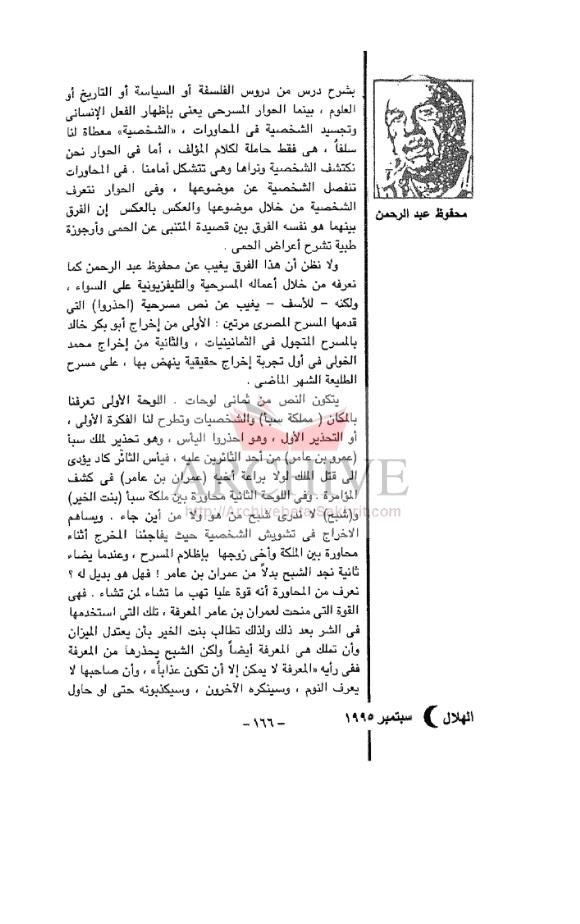 بشرح درس من دروس الفلسفة أو السياسة أو التاريخ أو
العلوم ، بينما الحوار المسرحى يعنى بإظهار الفعل الإنسانى
وتجسيد الشخصية فى المحاورات ، «الشخصية» معطاة لنا
سلفاً ، هى فقط حاملة لكلام المؤلف ، أما فى الحوار نحن
نكتشف الشخصية ونراها وهى تتشكل أمامنا . فى المحاورات
تنفصل الشخصية عن موضوعها ، وفى الحوار نتعرف
الشخصية من خلال موضوعها والعكس بالعكس إن الفرق
بينهما هو نفسه الفرق بين قصيدة المتنبى عن الحمى وأرجوزة
طبية تشرح أعراض الحمى .
ولا نظن أن هذا الفرق يغيب عن محفوظ عبد الرحمن كما
نعرفه من خلال أعماله المسرحية والتليفزيونية على السواء ،
ولكنه – للأسف – يغيب عن نص مسرحية (احذروا) التى
قدمها المسرح المصرى مرتين : الأولى من إخراج أبو بكر خالد
بالمسرح المتجول فى الثمانينيات ، والثانية من إخراج محمد
الخولى فى أول تجربة إخراج حقيقية ينهض بها ، على مسرح
الطليعة الشهر الماضى .
يتكون النص من ثمانى لوحات . اللوحة الأولى تعرفنا
بالمكان ( مملكة سبأ) والشخصيات وتطرح لنا الفكرة الأولى ،
أو التحذير الأول ، وهو احذروا اليأس ، وهو تحذير لملك سبأ
(عمرو بن عامر) من أحد الثائرين عليه ، فيأس الثائر كاد يؤدى
إلى قتل الملك لولا براعة أخيه (عمران بن عامر) فى كشف
المؤامرة . وفى اللوحة الثانية محاورة بين ملكة سبأ (بنت الخير)
و(شبح) لا ندرى شبح من هو ولا من أين جاء . ويساهم
الاخراج فى تشويش الشخصية حيث يفاجئنا المخرج أثناء
محاورة بين الملكة وأخى زوجها بإظلام المسرح ، وعندما يضاء
ثانية نجد الشبح بدلاً من عمران بن عامر ! فهل هو بديل له ؟
نعرف من المحاورة أنه قوة عليا تهب ما تشاء لمن تشاء . فهى
القوة التى منحت لعمران بن عامر المعرفة ، تلك التى استخدمها
فى الشر بعد ذلك ولذلك تطالب بنت الخير بأن يعتدل الميزان
وأن تملك هى المعرفة أيضاً ولكن الشبح يحذرها من المعرفة
ففى رأيه «المعرفة لا يمكن إلا أن تكون عذاباً» ، وأن صاحبها لا
يعرف النوم ، وسينكره الآخرون ، وسيكذبونه حتى لو حاول
محفوظ عبد الرحمن
ARCHIVE
http://Archivebeta.Sakhrit.com
الهلال سبتمبر ١٩٩٥
– ١٦٦ –